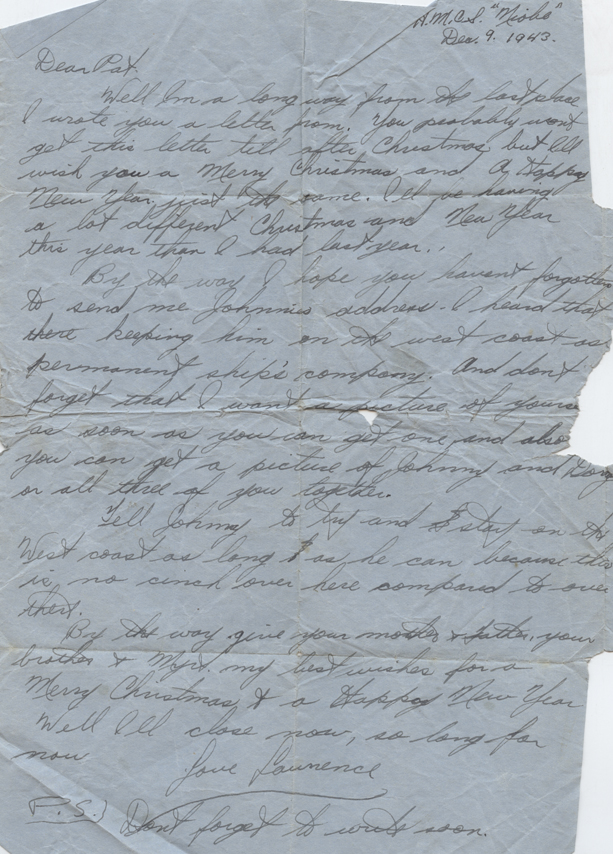 H.M.C.S. "Niobe"
Dec. 9. 1943.
Dear Pat.
Well Im a long way from the last place
I wrote you a letter from. You probably wont
get this letter till after Christmas but I'll
wish you a Merry Christmas and A Happy
New Year just the same. I'll be having
a lot different Christmas and New Year
this year than I had last year.
By the way I hope you havent forgotten
to send me Johnnies address. I heard that
there keeping him on the west coast as
permanent ship's company. And don't
forget that I want a picture of yours
as soon as you can get one and also
you can get a picture of Johnny and
or all three of you together.
Tell Johnny to try and stay on the
West coast as long as he can because this
is no cinch over here compared to over
there.
By the way give your mother & father, your
brother & my best wishes for a
Merry Christmas & a Happy New Year
Well I'll close now, so long for
now
Love Lawrence
P.S.) Don't forget to write soon.